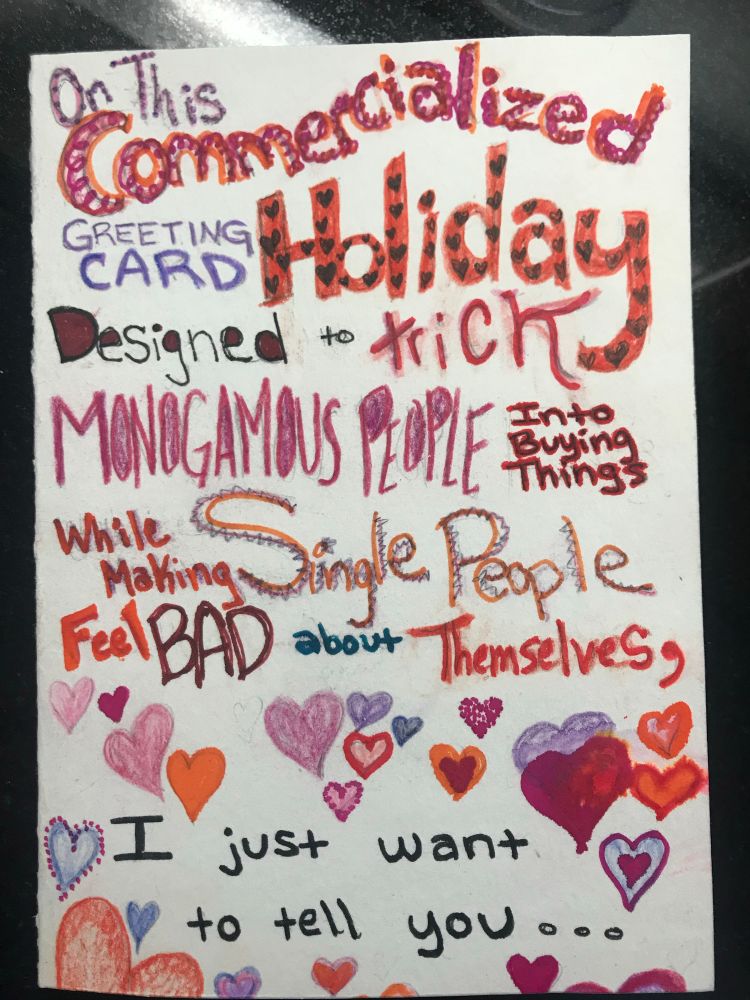 On This
Commercialized
GREETING
CARD
Holiday
Designed to trick
MONOGAMOUS PEOPLE
Into
Buying
Things
While
Making
Single People
Feel BAD about Themselves,
I just want
to tell you...